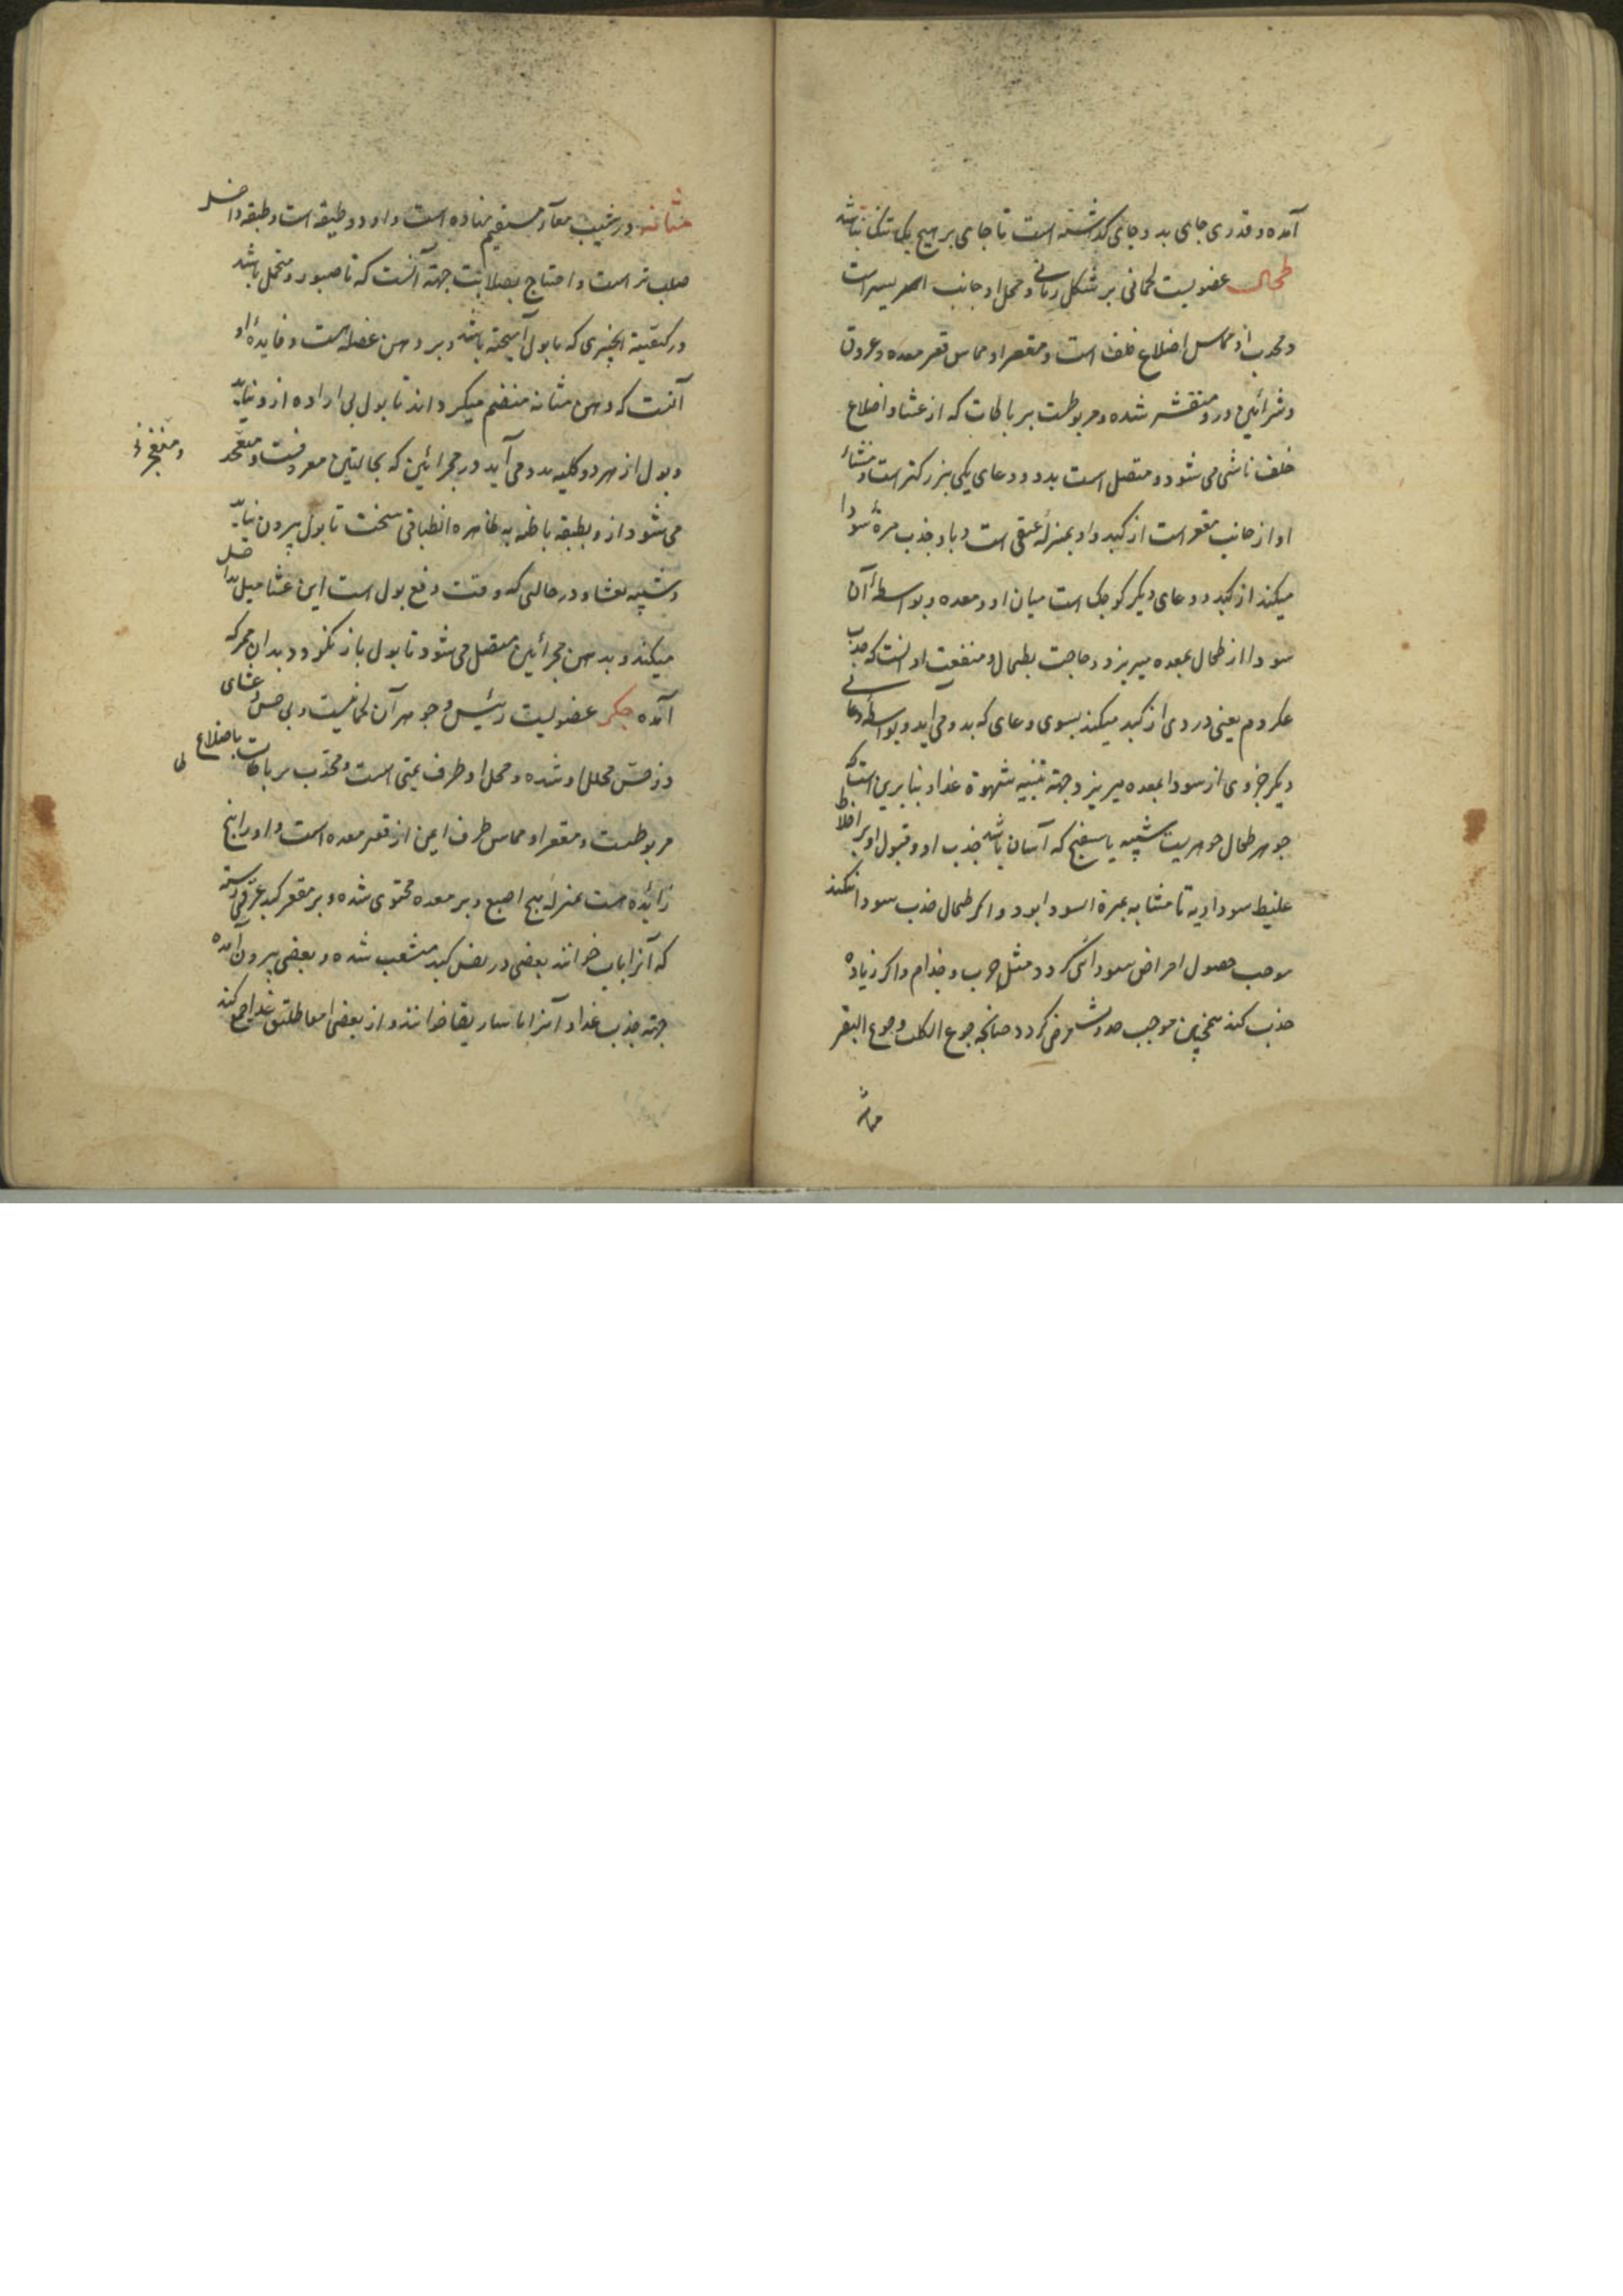 آمده و قدری جای بد و جای کذاشته است تا جای بر هیچ یک تنک نباشد
طحال عضویست لحمانی بر شکل زبانی و محل او جانب ایسر است
و محدب او مماس اضلاع خلف است و مقعر او مماس قعر معده و عروق
و شرائین درو منقشه شده و مربوطست برباطات که از غشا و اضلاع
خلف ناشی می شود و متصل است بدو دو وعای یکی بزرکتر است و منشاء
او از جانب مقعر است از کبد و او بمنزله عنقی است و باو جذب مره سودا
میکند از کبد و وعای دیکر کوجک است میان او و معده و بواسطه آن
سودا از طحال بمعده میریزد و حاجت بطحال و منفعت او انست که جذب
عکر دم یعنی دردی از کبد میکند بسوی وعای که بدو می اید و بواسطه وعائی
دیکر جزوی از سودا بمعده میریزد جهة تنبیه شهوة غذا و بنابرین است که
جوهر طحال جوهریست شبیه باسفنج که آسان باشد جذب او و قبول او بر اخلاط
غلیظ سوداویه تا مشابه بمرة السودا بود و اکر طحال جذب سودا نکند
موجب حصول امراض سوداوی کردد مثل جرب و جذام و اکر زیاده
جذب کند همچنین موجب حدوث مرض کردد جنانجه جوع الکلب و جوع البقر
مثانه
مثانه در شیب معآء مستقیم نهاده است و او دو طبقه است و طبقه داخل
صلب تر است و احتیاج بصلابت جهة آنست که تا صبور و متحمل باشد
در کیفیة انچیزی که با بول آمیخته باشد و بر دهن عضله است و فایده او
آنست که دهن مثانه منضم میکرداند تا بول بی اراده ازو نیاید
و بول از هر دو کلیه بدو می آید در مجرائین که بحالبین معروفست و متحد
و منفجر
می شود ازو بطبقه باطنه به ظاهره انطباقی سخت تا بول بیرون نیاید
و شبیه بغشا و در حالتی که وقت دفع بول است این غشا میل بداخل
میکند و بدهن مجرائین متصل می شود تا بول باز نکردد بدان مجر که
آمده جکر عضویست رئیس و جوهر آن لحمانیست و بی حس و غشای
ذو حس محلل او شده و محل او طرف یمنی است و محدب برباطات باضلاع
مربوطست و مقعر او مماس طرف ایمن از قعر معده است و او را پنج
زائده است بمنزله پنج اصبع و بر معده محتوی شده و بر مقعر کبد عرقی رسته
که آنرا باب خوانند بعضی در نفس کبد متشعب شده و بعضی بیرون آمده
جهة جذب غذا و آنرا ماساریقا خوانند و از بعضی امعا طلب غذا جمع کند